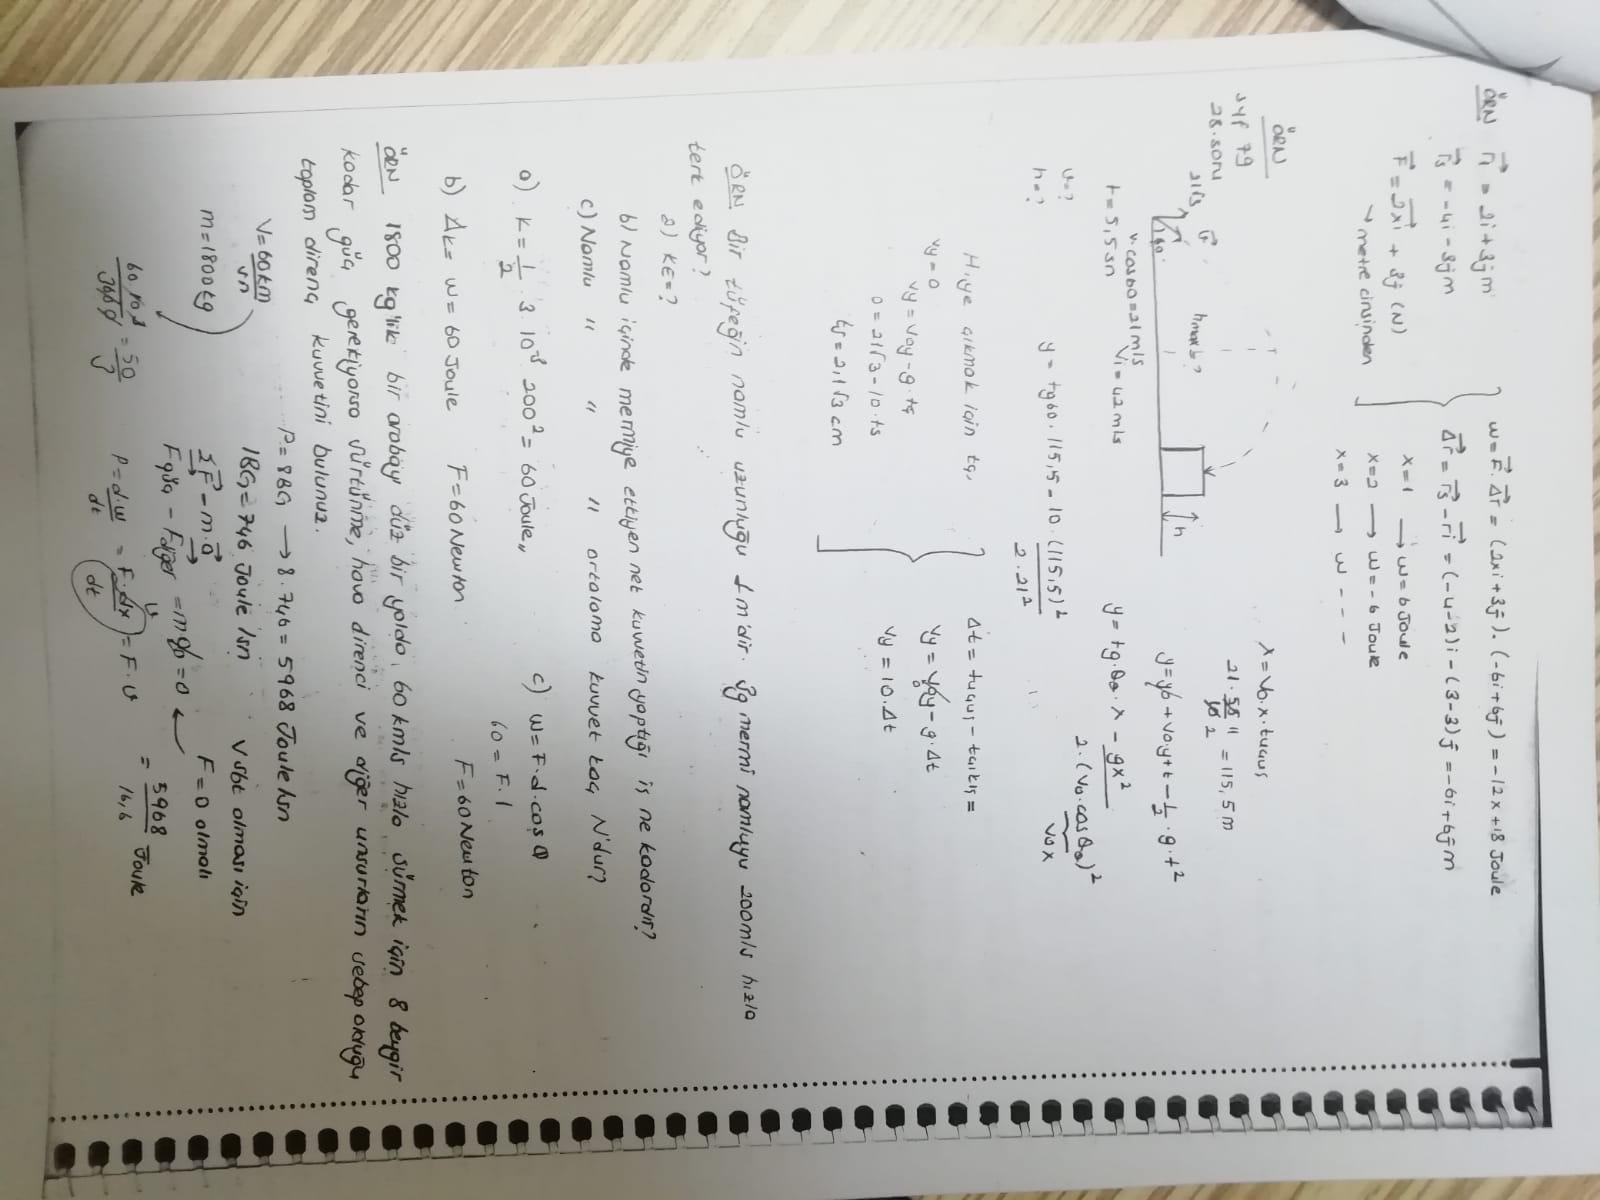 ÖRN r₁ = 2i+3j m
r₅ = -4i - 3j m
F = 2xi + 3j (N)
→ metre cinsinden
w = F. Δr = (2xi+3j). (-6i+6j) = -12x+18 Joule
Δr = r₅ - ri = (-4-2)i - (3-3)j = -6i+6j m
x=1 → w=6 Joule
x=2 → w=-6 Joule
x=3 → w - - -
ÖRN
syf 79
28.soru
21√3
60
hmax=?
h
v. cos60=21 m/s
t=5,5 sn
Vi=42 m/s
v=?
h=?
x=V0.x.tuçuş
21. 55/10 11/2 = 115,5 m
y=y0+v0.y+t-1/2.g.t²
y= tg.θ0.x - gx²/2.(v0.cosθ0)²
v0x
y= tg60. 115,5 - 10.(115,5)²/2.21²
H.ye çıkmak için tç,
vy=0
vy=v0y-g.tç
0=21√3-10.ts
ts=2,1√3 cm
Δt = tuçuş - tçıkış =
vy = v0y - g.Δt
0
vy = 10.Δt
ÖRN Bir tüfeğin namlu uzunluğu 1m'dir. 3g mermi namluyu 200m/s hızla
terk ediyor?
a) KE=?
b) Namlu içinde mermiye ettiyen net kuvvetin yaptığı iş ne kadardır?
c) Namlu " " " ortalama kuvvet kaç N'dur?
a) K=1/2 3.10⁻³ 200² = 60 Joule,,
b) Δk= w=60 Joule F=60 Newton
c) w=F.d.cosθ
60=F.1
F=60 Newton
ÖRN 1800 kg'lik bir arabayı düz bir yolda, 60 km/s hızla sürmek için 8 beygir
kadar güç gerekiyorsa sürtünme, hava direnci ve diğer unsurların sebep olduğu
toplam direnç kuvvetini bulunuz.
P=8BG → 8.746=5968 Joule/sn
V=60 km/sn
1BG=746 Joule/sn
V sbt olması için
m=1800 kg
ΣF - m.a
F=0 olmalı
Fgüç - Fdiğer = m.a = 0
60.10³/3600 = 50/3
P=d.w/dt = F.dx/dt = F.v
v
= 5968/16,6 Joule